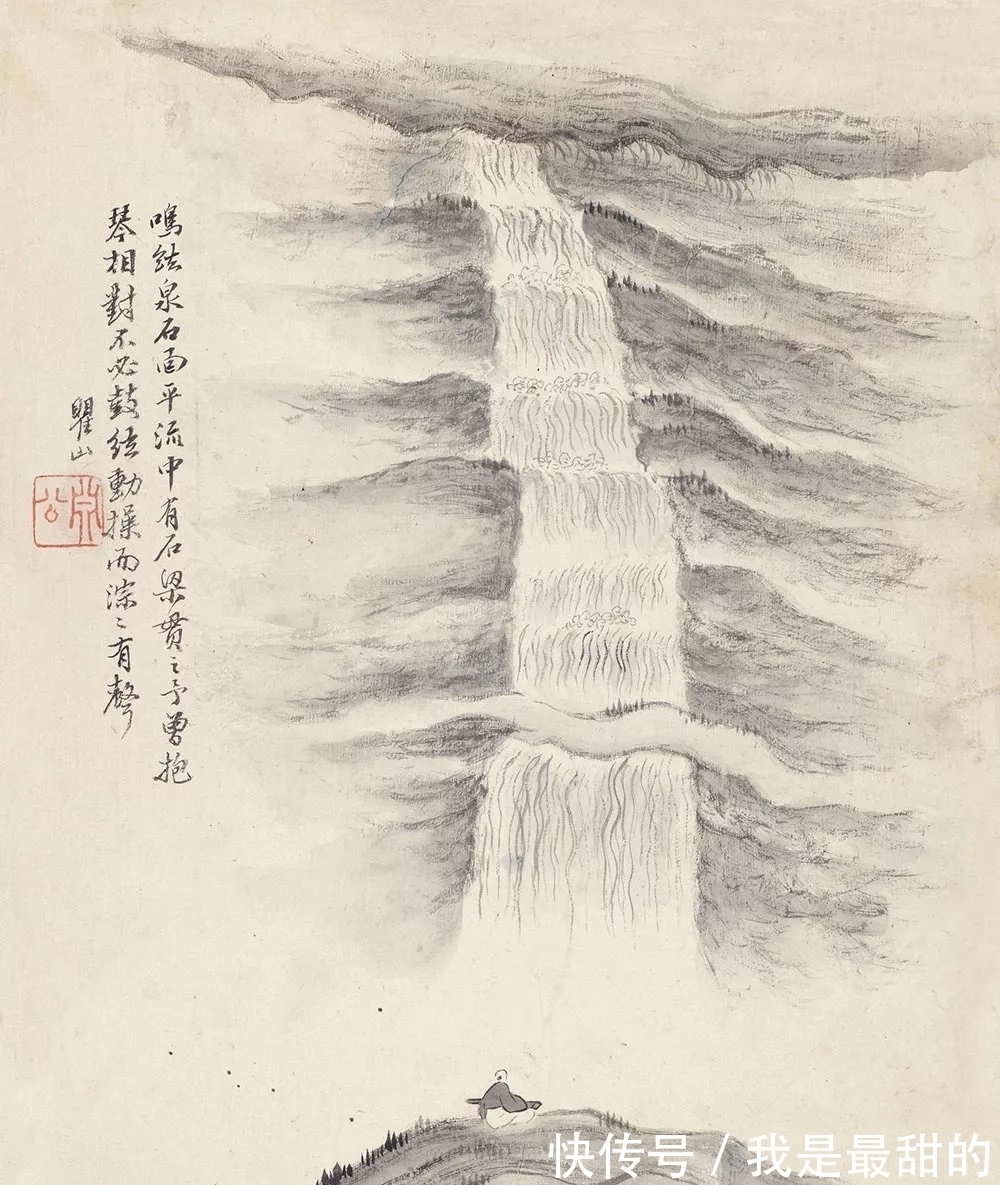 鳴絃泉石面平流中有石梁貫之予曾抱
琴相對不必鼓絃動操而淙〻有聲
瞿山
快传号 / 我是最甜的